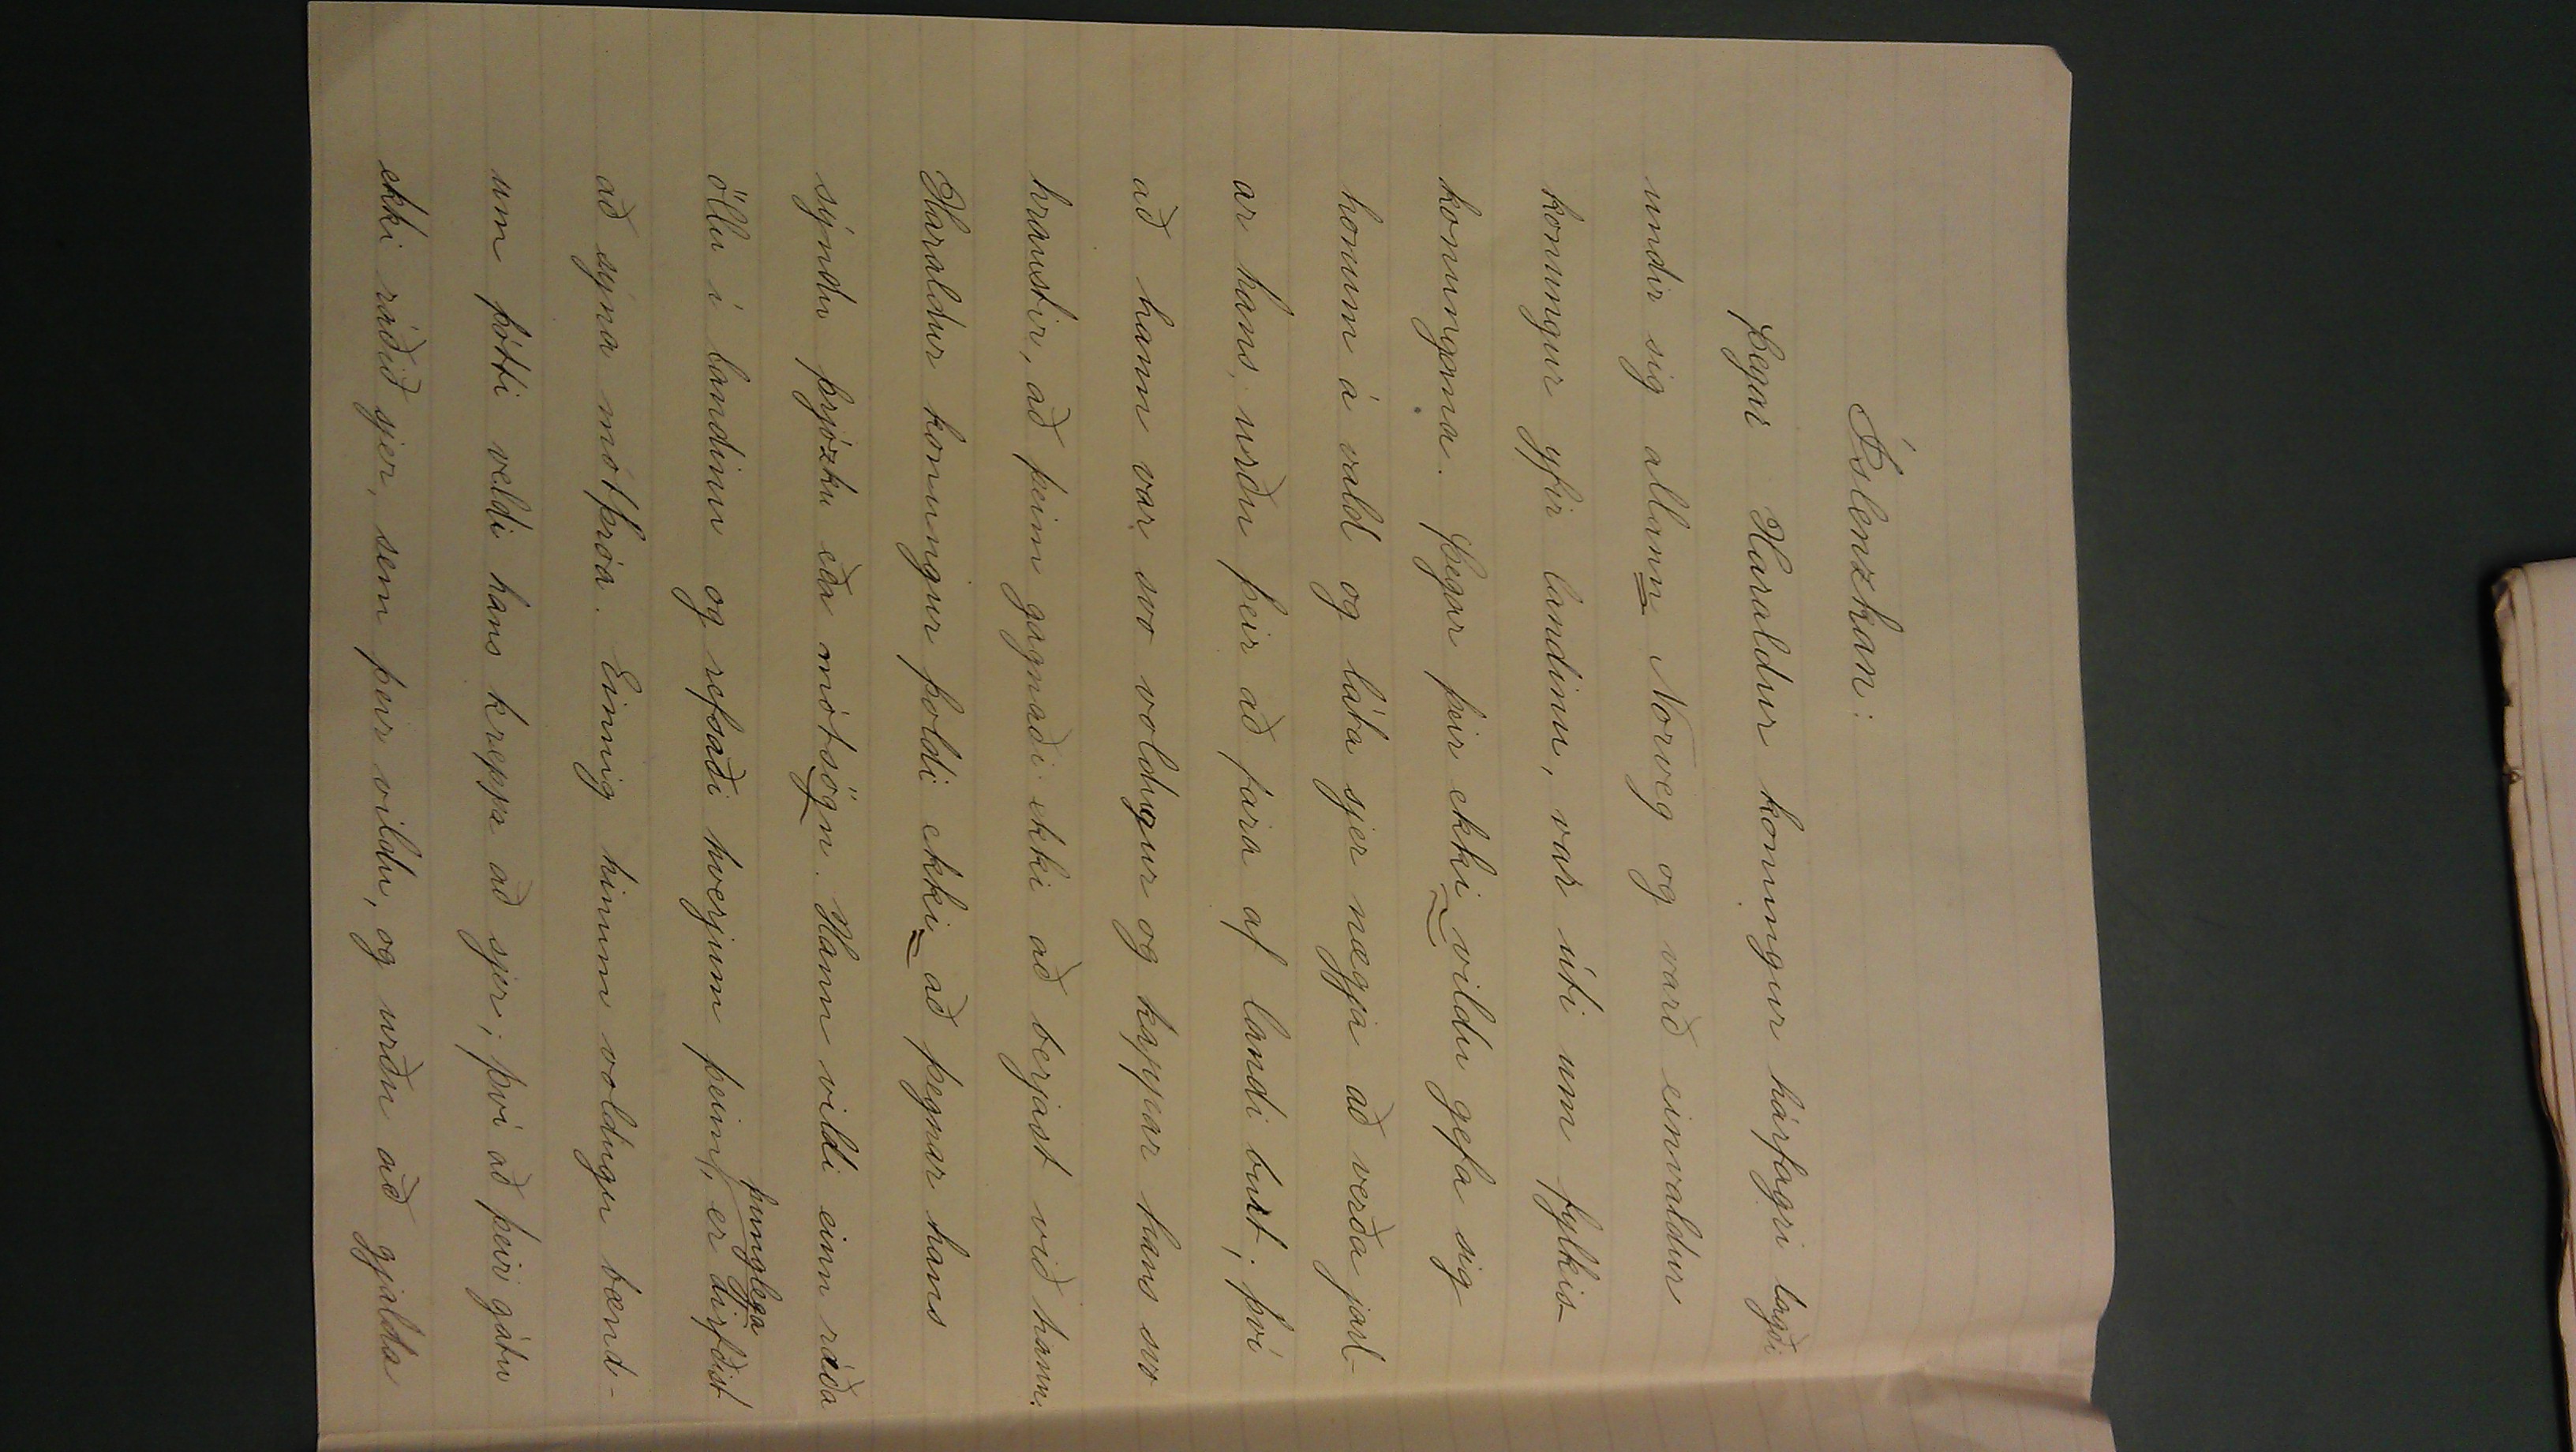 Íslenzkan:
Þegar Haraldur konungur hárfagri lagði
undir sig allann Norveg og varð einvaldur
konungur yfir landinu, var úti um fylkis-
konungana. Þegar þeir ekki vildu gefa sig
honum á vald og láta sjer nægja að verða jarl-
ar hans, urðu þeir að fara af landi burt; því
að hann var svo voldugur og kappar hans svo
hraustir, að þeim gagnaði ekki að berjast við hann.
Haraldur konungur þoldi ekki að þegnar hans
sýndu þrjózku eða mótsögn. Hann vildi einn ráða
öllu í landinu og refsaði hverjum þeim, þunglega er dirfðist
að sýna mótþróa. Einnig hinum voldugu bænd-
um þótti veldi hans kreppa að sjer; því að þeir gátu
ekki ráðið sjer, sem þeir vildu, og urðu að gjalda